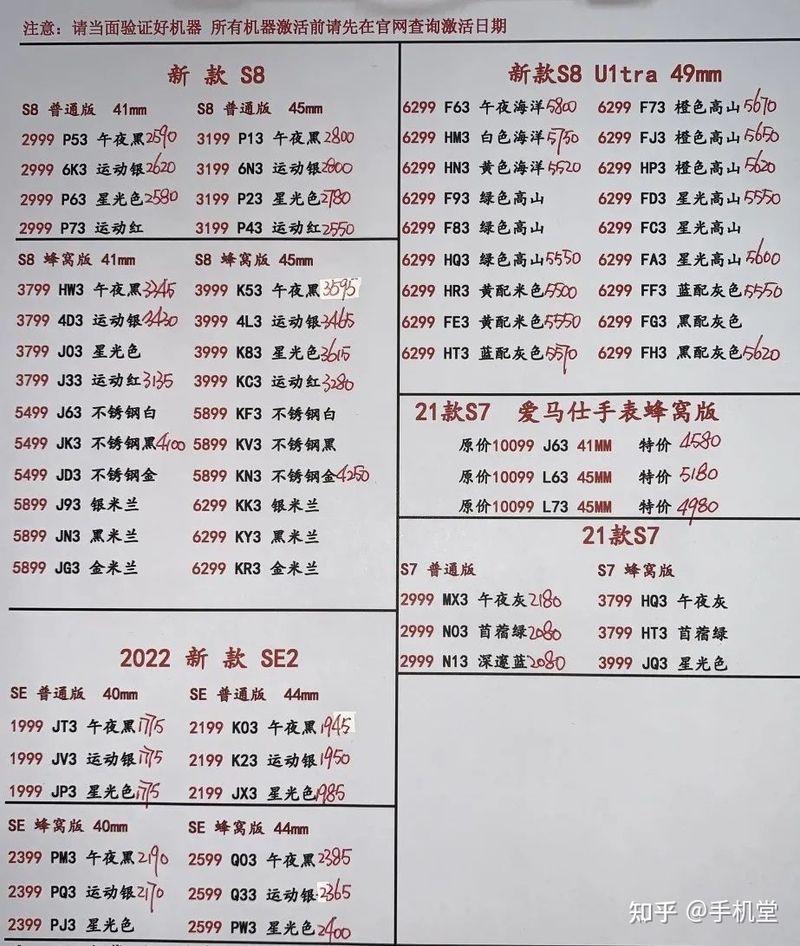 注意：请当面验证好机器 所有机器激活前请先在官网查询激活日期
新 款 S8
S8 普通版 41mm S8 普通版 45mm
2999 P53 午夜黑2590 3199 P13 午夜黑2800
2999 6K3 运动银2620 3199 6N3 运动银2800
2999 P63 星光色2580 3199 P23 星光色2780
2999 P73 运动红 3199 P43 运动红2550
S8 蜂窝版 41mm S8 蜂窝版 45mm
3799 HW3 午夜黑3345 3999 K53 午夜黑3595
3799 4D3 运动银3430 3999 4L3 运动银3465
3799 J03 星光色 3999 K83 星光色3615
3799 J33 运动红3135 3999 KC3 运动红3280
5499 J63 不锈钢白 5899 KF3 不锈钢白
5499 JK3 不锈钢黑4100 5899 KV3 不锈钢黑
5499 JD3 不锈钢金 5899 KN3 不锈钢金4250
5899 J93 银米兰 6299 KK3 银米兰
5899 JN3 黑米兰 6299 KY3 黑米兰
5899 JG3 金米兰 6299 KR3 金米兰
2022 新 款 SE2
SE 普通版 40mm SE 普通版 44mm
1999 JT3 午夜黑1775 2199 K03 午夜黑1945
1999 JV3 运动银1775 2199 K23 运动银1950
1999 JP3 星光色1775 2199 JX3 星光色1985
SE 蜂窝版 40mm SE 蜂窝版 44mm
2399 PM3 午夜黑2190 2599 Q03 午夜黑2385
2399 PQ3 运动银2170 2599 Q33 运动银2365
2399 PJ3 星光色 2599 PW3 星光色2400
新款S8 U1tra 49mm
6299 F63 午夜海洋5800 6299 F73 橙色高山5670
6299 HM3 白色海洋5750 6299 FJ3 橙色高山5650
6299 HN3 黄色海洋5520 6299 HP3 橙色高山5620
6299 F93 绿色高山 6299 FD3 星光高山5550
6299 F83 绿色高山 6299 FC3 星光高山
6299 HQ3 绿色高山5550 6299 FA3 星光高山5600
6299 HR3 黄配米色5500 6299 FF3 蓝配灰色5550
6299 FE3 黄配米色5550 6299 FG3 黑配灰色
6299 HT3 蓝配灰色5570 6299 FH3 黑配灰色5620
21款S7 爱马仕手表蜂窝版
原价10099 J63 41MM 特价 4580
原价10099 L63 45MM 特价 5180
原价10099 L73 45MM 特价 4980
21款S7
S7 普通版 S7 蜂窝版
2999 MX3 午夜灰2180 3799 HQ3 午夜灰
2999 N03 苜蓿绿2080 3799 HT3 苜蓿绿
2999 N13 深邃蓝2080 3999 JQ3 星光色
知乎 @手机堂